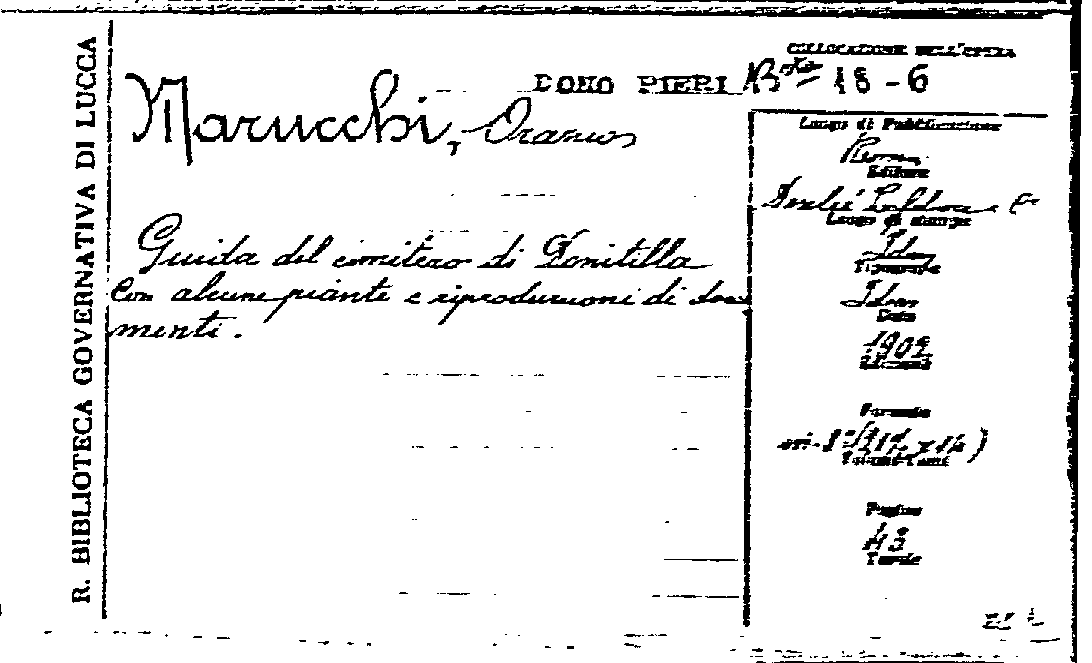 R. BIBLIOTECA GOVERNATIVA DI LUCCA
COLLOCAZIONE DELL'OPERA
DONO PIERI B 18-6
Marucchi, Orazio
Guida del cimitero di Domitilla
Con alcune piante e riproduzioni di docu
menti.
Luogo di Pubblicazione
Roma
Editore
Desclée Lefebvre e C
Luogo di stampa
Idem
Tipografo
Idem
Data
1902
Formato
in-8°
Volumi-Tomi
Pagine
43
Tavole